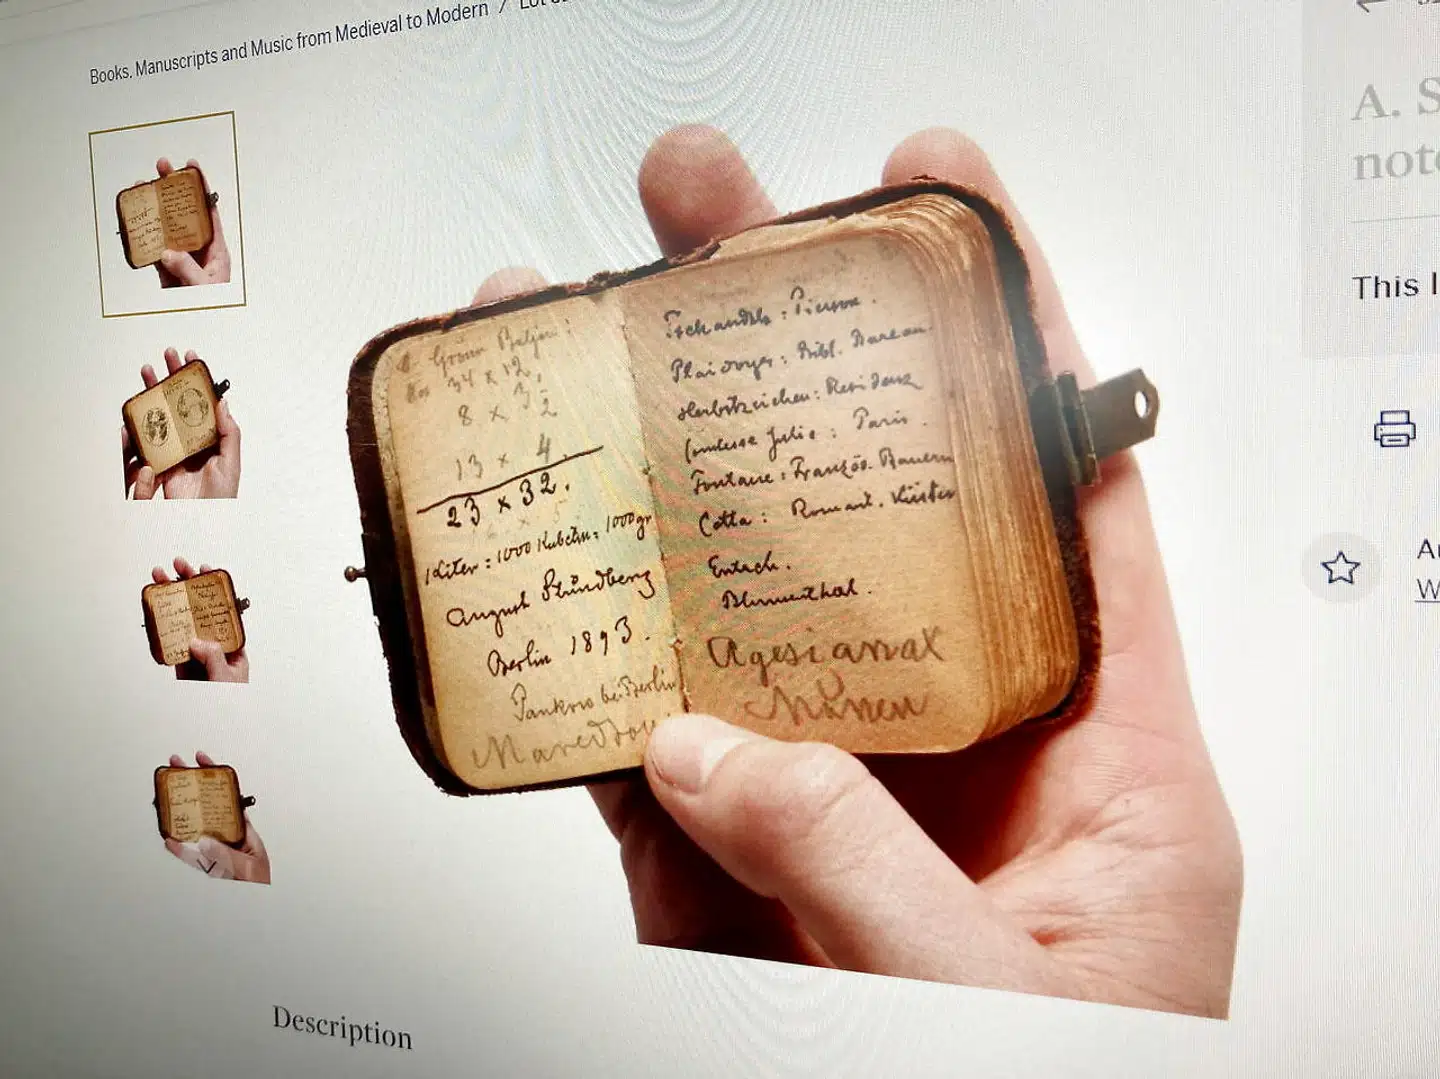 Books, Manuscripts and Music from Medieval to Modern /
A. S
note
This l
34 x 12.
8 x 3
2
13 x 4.
23 x 32.
1 Liter = 1000 Kubctm = 1000 gr
August Strindberg
Berlin 1893.
Pankow bei Berlin
: Pierson.
Plaidoyer: Bibl. Bureau.
Herbstzeichen: Residenz
Comtesse Julie: Paris.
Fontane: Französ. Bauern
Cotta: Romant. Küster
Entsch.
Blumenthal.
Agesianax
Description